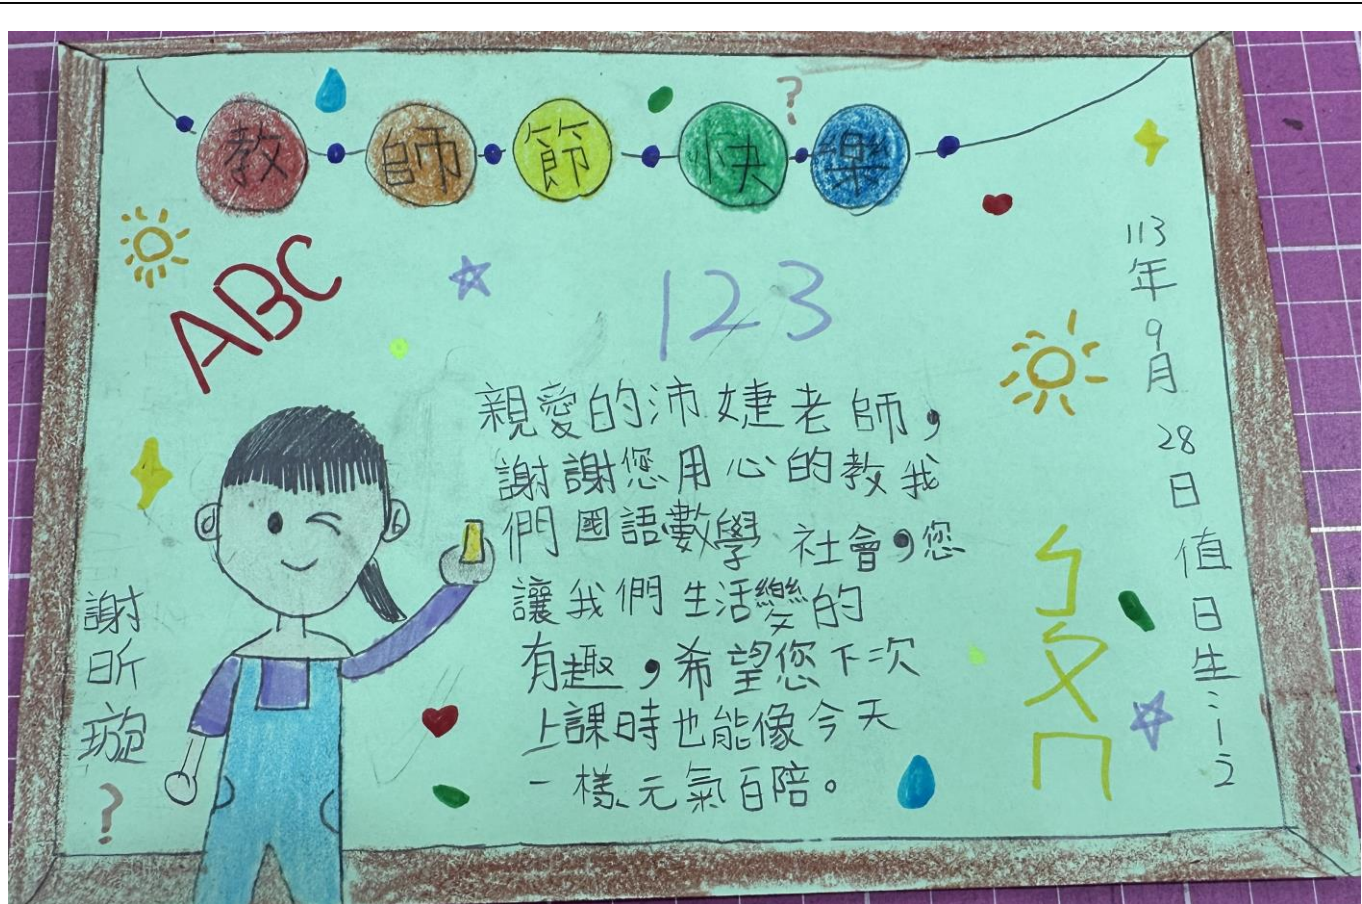 教師節快樂
?
ABC
123
親愛的沛婕老師,
謝謝您用心的教我
們國語數學 社會,您
讓我們生活變的
有趣,希望您下次
上課時也能像今天
一樣元氣百陪。
113年9月28日值日生:12
ㄅㄆㄇ
謝昕璇
?